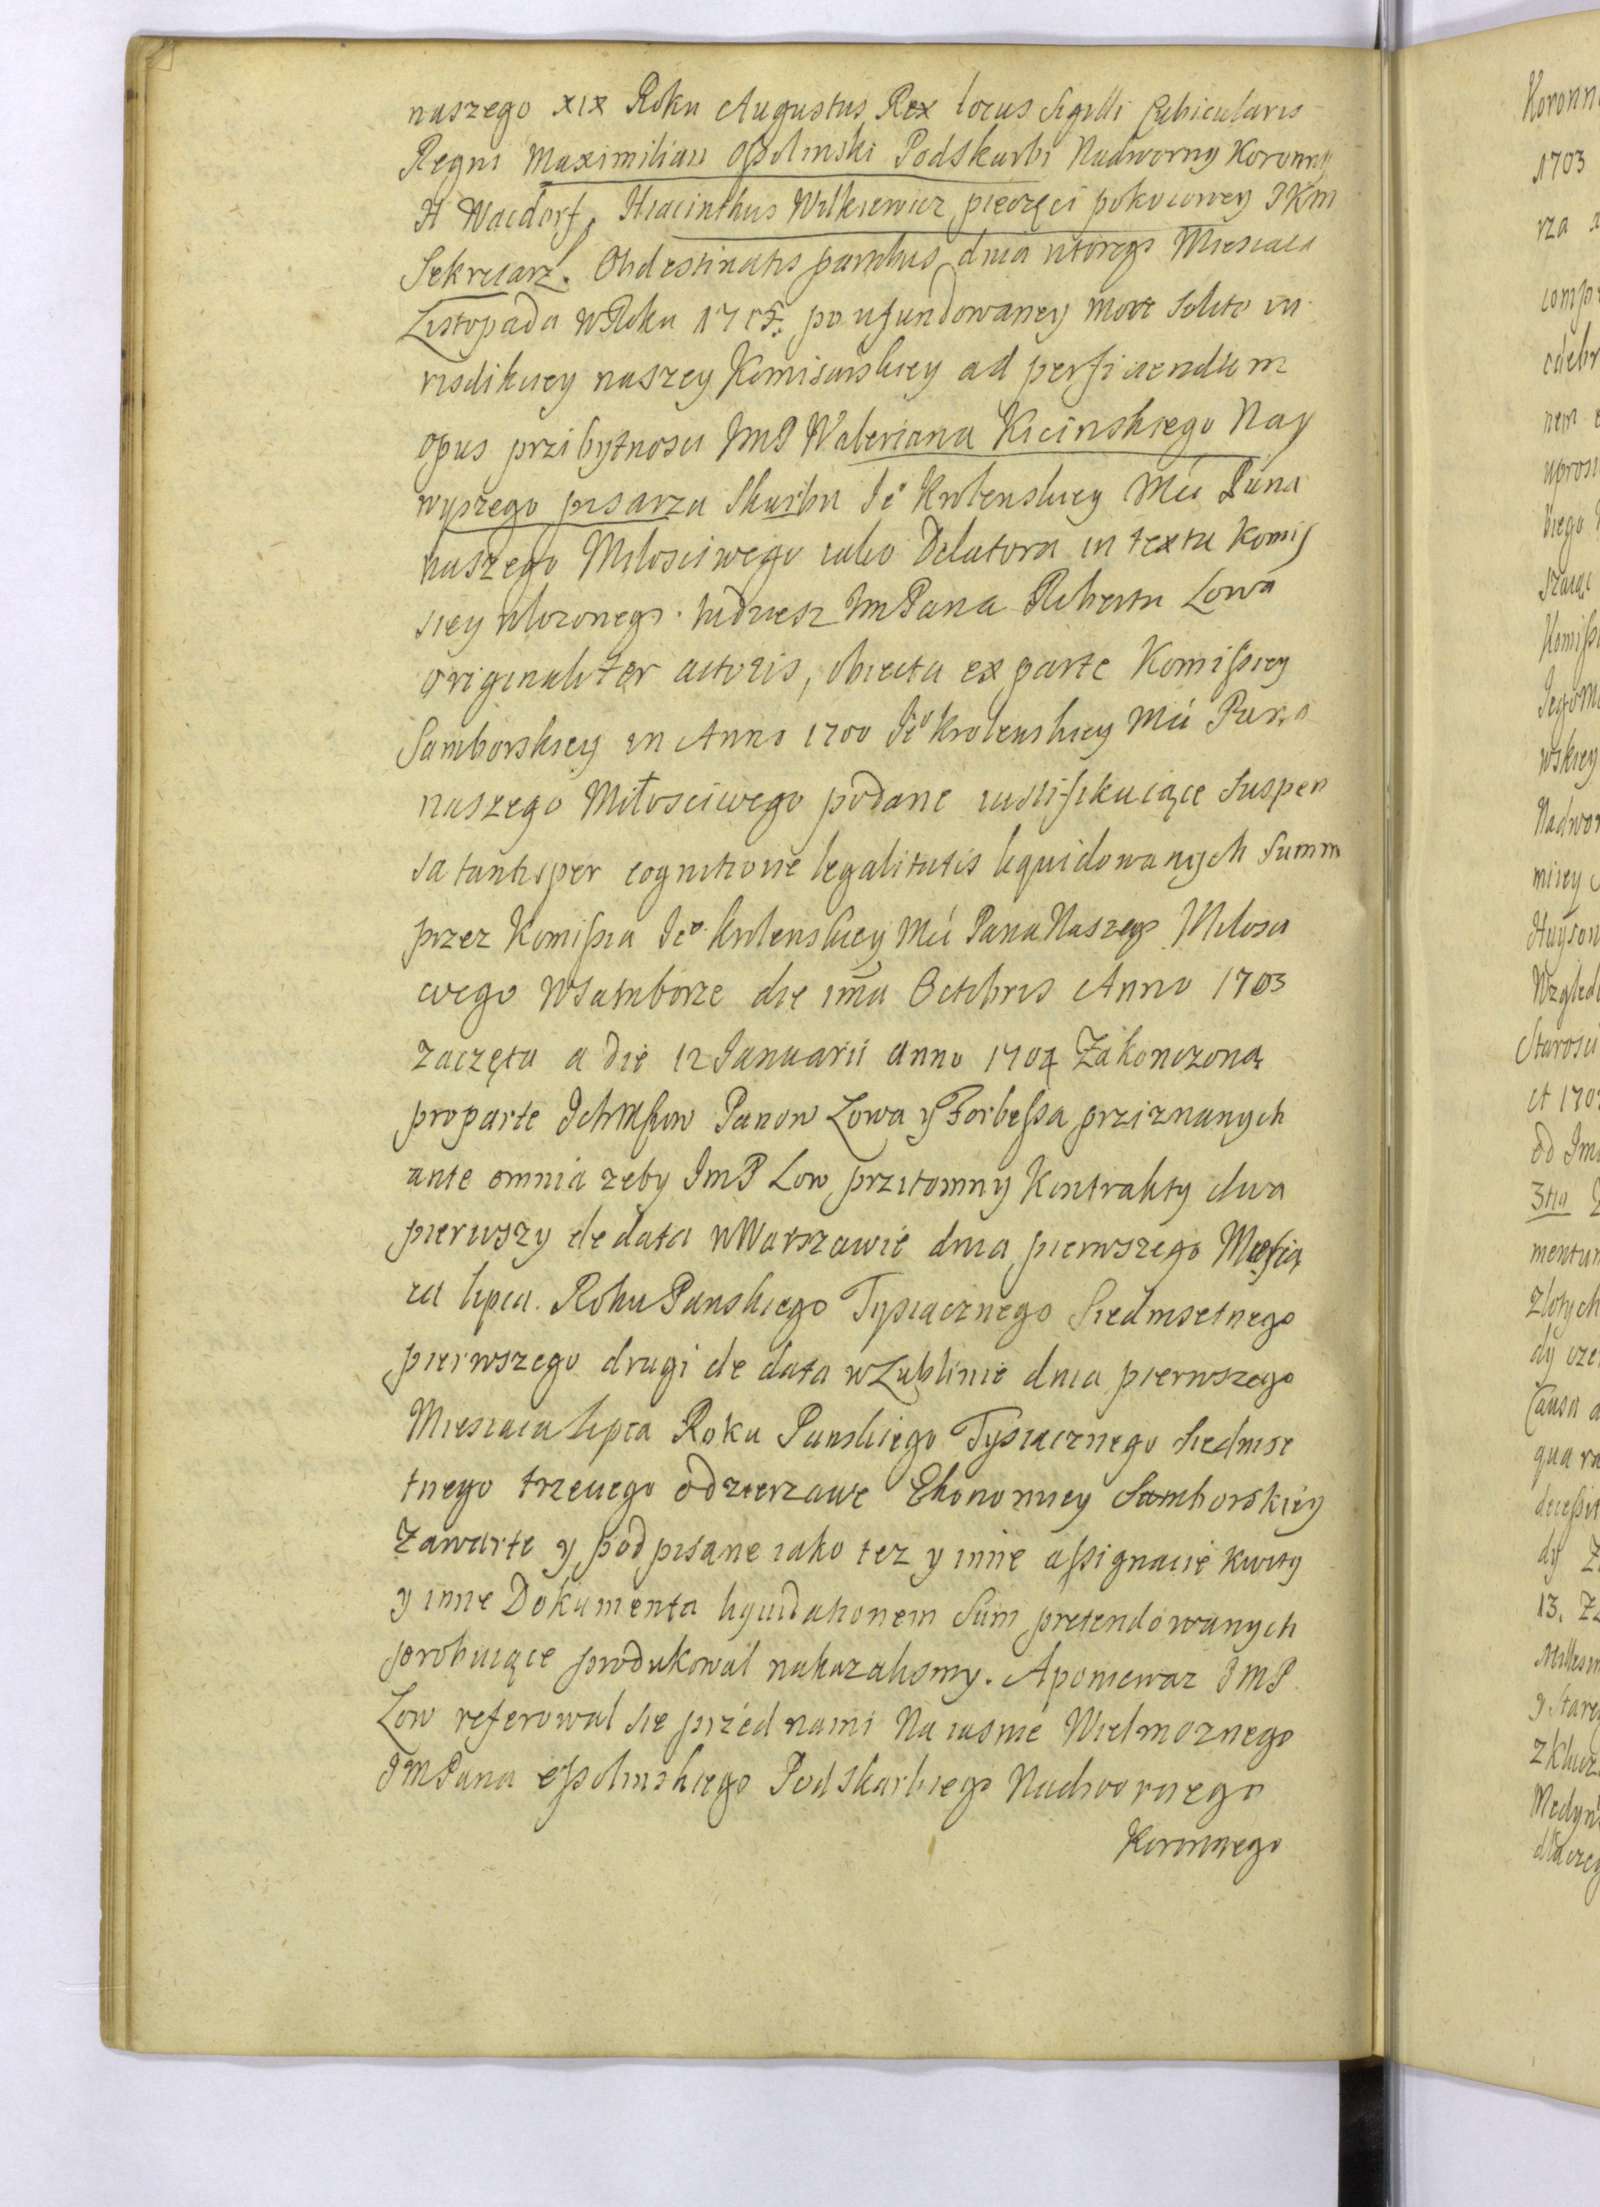 naszego XIX Roku Augustus Rex locus Sigilli Cubicularis
Regni Maximilian Ossolinski Podskarbi Nadworny Koronny
H Wacdorf, Hiacinthus Wilkiewicz pieczęci pokoiowey JKM
Sekretarz. Obdestinatis partibus dnia wtorego Miesiaca
Listopada w Roku 1715. po ufundowaney more Solito iu
risdikciey naszey Komisarskiey ad perficiendum
opus przibytnosci JmP Waleriana Kicinskiego Nay
wyszego pisarza Skarbu Jeo Krolewskiey Mci Pana
naszego Milosciwego iako Delatora in textu Komis
siey wlozonego. tudziesz Im Pana Roberta Lowa
originaliter actoris, obiecta ex parte Komissiey
Samborskiey in Anno 1700 Jeo Krolewskiey Mci Pana
naszego Miłosciwego podane iustifikuiące Suspen
sa tantisper cognitione legalitatis liquidowanych Summ
przez Komissia Jeo Krolewskiey Mci Pana Naszego Milosci
wego w Samborze die ima Octobris Anno 1703
zaczęta a die 12 Januarii anno 1704 Zakonczoną
pro parte Ichmsciow Panow Lowa y Forbessa prziznanych
ante omnia zeby JmP Low przitomny Kontrakty dwa
pierwszy de data w Warszawie dnia pierwszego Miesią
ca lipca Roku Panskiego Tysiącznego Siedmsetnego
pierwszego drugi de data w Lublinie dnia pierwszego
Miesiaca lipca Roku Panskiego Tysiącznego Siedmse
tnego trzeciego odzierzawe Ekonomiey Samborskiey
Zawarte y podpisane iako tez y inne assignacie kwity
y inne Dokumenta liquidationem Sum pretendowanych
probuiące produkował nakazalismy. Aponiewaz JMP
Low referowal sie przed nami Na iasnie Wielmoznego
JMPana Ossolinskiego Podskarbiego Nadwornego
Koronnego
Koronn
1703
rza
comp
odebr
nem
upros
kiego
szaiąc
Komiss
Jegom
wskiey
Nadwor
miey
Względ
Starosci
et 170
od Im
3tia
mentum
zlotych
dy cze
Causa
dy
13. Z
y Stare
z Klucz
Medyn